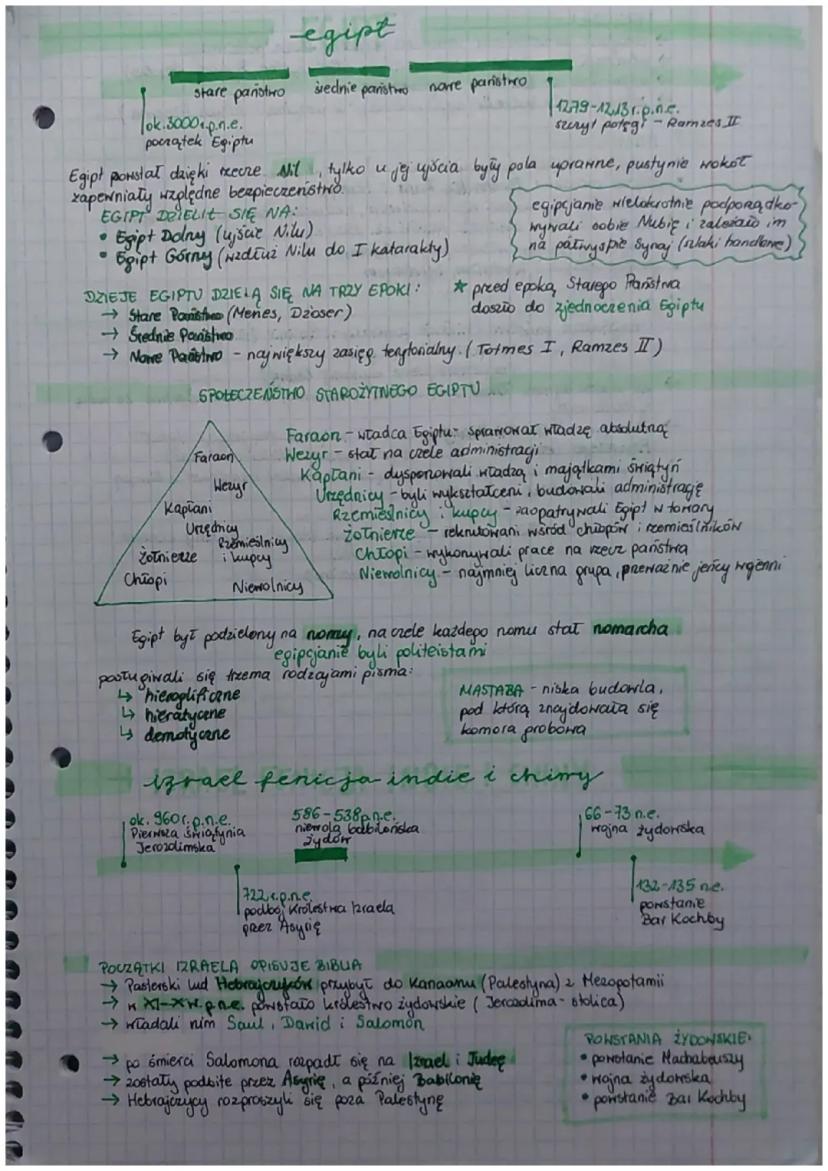 egipt
stare państwo średnie państwo nowe państwo
ok. 3000 r.p.n.e.
początek Egiptu
1279-1213 r.p.n.e.
szczyt potęgi - Ramzes II
Egipt powstał dzięki rzece Nil, tylko u jej ujścia były pola uprawne, pustynie wokół
zapewniały względne bezpieczeństwo.
EGIPT DZIELIŁ SIĘ NA:
• Egipt Dolny (ujście Nilu)
• Egipt Górny (wzdłuż Nilu do I katarakty)
egipcjanie wielokrotnie podporządko-
wywali sobie Nubię i zależało im
na półwyspie Synaj (szlaki handlowe)
DZIEJE EGIPTU DZIELĄ SIĘ NA TRZY EPOKI:
→ Stare Państwo (Menes, Dżoser)
→ Średnie Państwo
→ Nowe Państwo - największy zasięg terytorialny. (Totmes I, Ramzes II)
★ przed epoką Starego Państwa
doszło do zjednoczenia Egiptu
SPOŁECZEŃSTWO STAROŻYTNEGO EGIPTU
Faraon
Wezyr
Kapłani
Urzędnicy
Rzemieślnicy
i kupcy
Żołnierze
Chłopi
Niewolnicy
Faraon - władca Egiptu - sprawował władzę absolutną
Wezyr - stał na czele administracji
Kapłani - dysponowali władzą i majątkami świątyń
Urzędnicy - byli wykształceni, budowali administrację
Rzemieślnicy i kupcy - zaopatrywali Egipt w towary
Żołnierze - rekrutowani wśród chłopów i rzemieślników
Chłopi - wykonywali prace na rzecz państwa
Niewolnicy - najmniej liczna grupa, przeważnie jeńcy wojenni
Egipt był podzielony na nomy, na czele każdego nomu stał nomarcha
egipcjanie byli politeistami
posługiwali się trzema rodzajami pisma:
↳ hieroglificzne
↳ hieratyczne
↳ demotyczne
MASTABA - niska budowla,
pod którą znajdowała się
komora grobowa
izrael fenicja indie i chiny
ok. 960 r.p.n.e.
Pierwsza świątynia
Jerozolimska
586-538 p.n.e.
niewola babilońska
żydów
66-73 n.e.
wojna żydowska
722 r.p.n.e.
podbój Królestwa Izraela
przez Asyrię
132-135 n.e.
powstanie
Bar Kochby
POCZĄTKI IZRAELA OPISUJE BIBLIA
→ Pasterski lud Hebrajczyków przybył do Kanaanu (Palestyna) z Mezopotamii
→ w XI-X w. p.n.e. powstało królestwo żydowskie (Jerozolima - stolica)
→ władali nim Saul, Dawid i Salomon
→ po śmierci Salomona rozpadł się na Izrael i Judeę
→ zostały podbite przez Asyrię, a później Babilonię
→ Hebrajczycy rozproszyli się poza Palestynę
POWSTANIA ŻYDOWSKIE:
• powstanie Machabeuszy
• wojna żydowska
• powstanie Bar Kochby